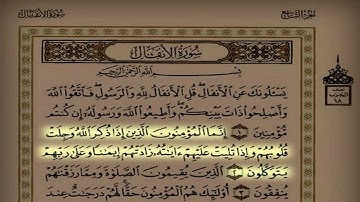 سُورَةُ الأَنفَالِ
الجزء التاسع
سُورَةُ الأَنفَالِ
بِسْمِ اللَّهِ الرَّحْمَٰنِ الرَّحِيمِ
يَسْـَٔلُونَكَ عَنِ الْأَنفَالِ قُلِ الْأَنفَالُ لِلَّهِ وَالرَّسُولِ فَاتَّقُوا اللَّهَ
وَأَصْلِحُوا ذَاتَ بَيْنِكُمْ وَأَطِيعُوا اللَّهَ وَرَسُولَهُ إِن كُنتُم
مُّؤْمِنِينَ ١ إِنَّمَا الْمُؤْمِنُونَ الَّذِينَ إِذَا ذُكِرَ اللَّهُ وَجِلَتْ
قُلُوبُهُمْ وَإِذَا تُلِيَتْ عَلَيْهِمْ ءَايَٰتُهُ زَادَتْهُمْ إِيمَٰنًا وَعَلَىٰ رَبِّهِمْ
يَتَوَكَّلُونَ ٢ الَّذِينَ يُقِيمُونَ الصَّلَوٰةَ وَمِمَّا رَزَقْنَٰهُمْ
يُنفِقُونَ ٣ أُولَٰئِكَ هُمُ الْمُؤْمِنُونَ حَقًّا لَّهُمْ دَرَجَٰتٌ عِندَ
نصف
الحزب
١٨